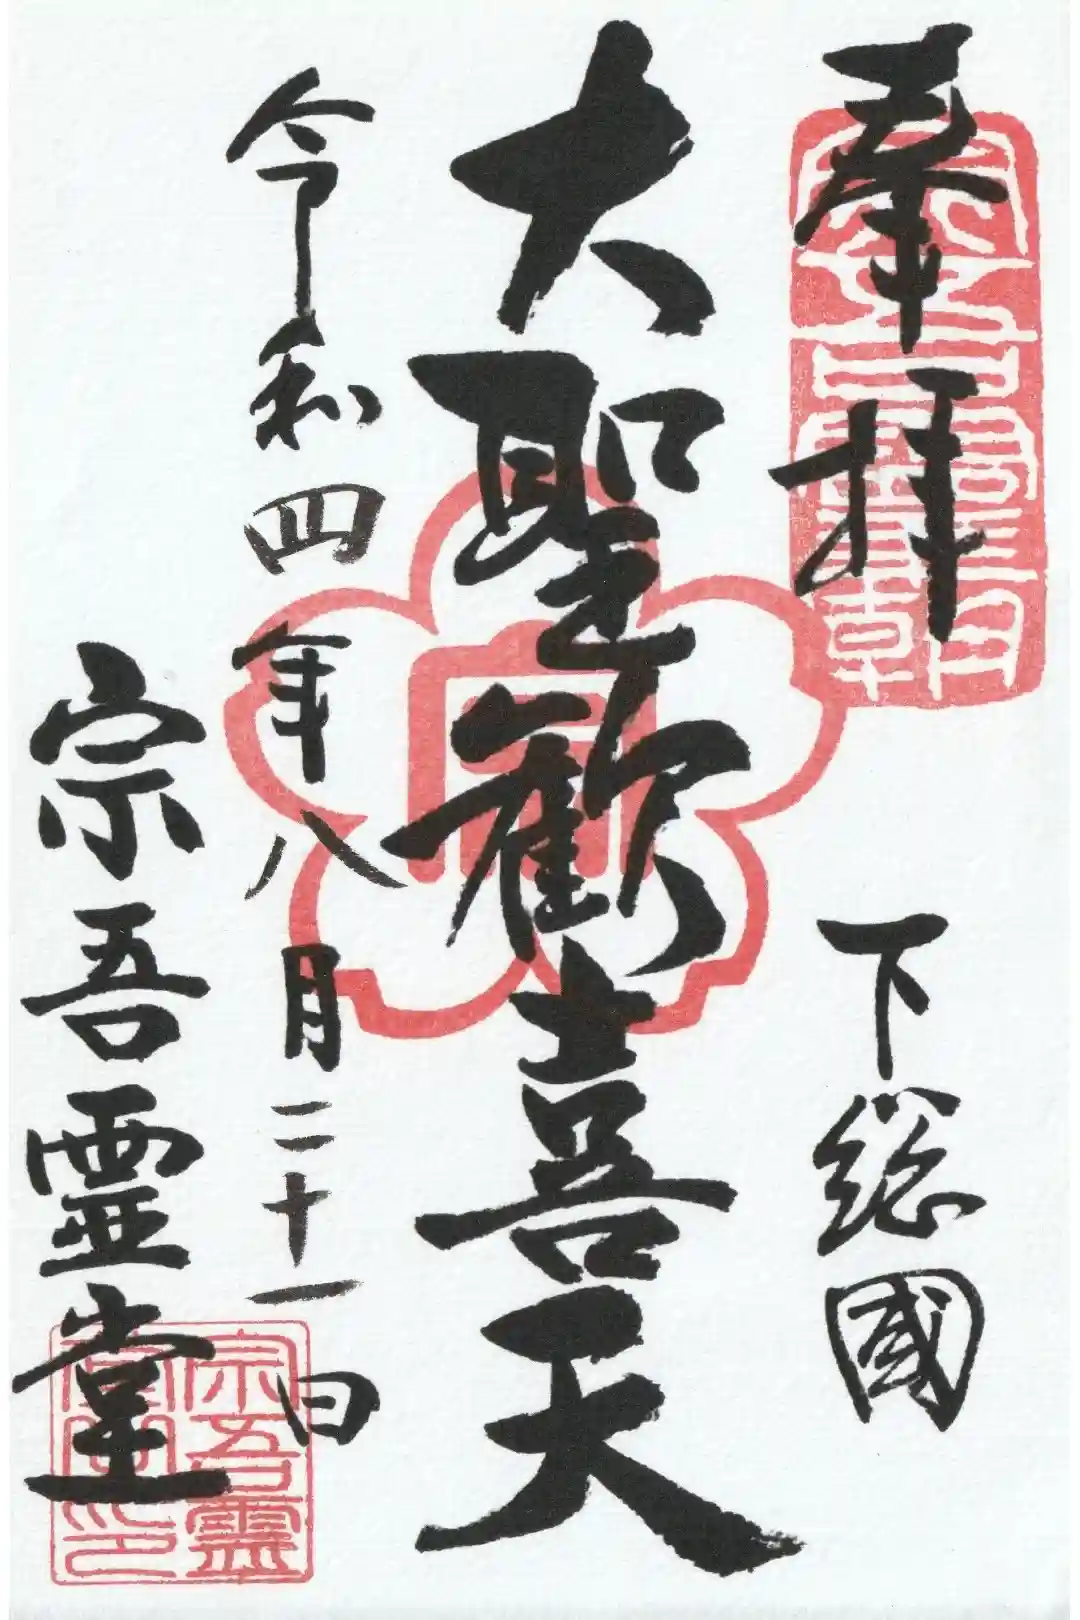 奉拝
下総國
大聖歓喜天
令和四年八月二十一日
宗吾霊堂
宗吾霊
堂之印